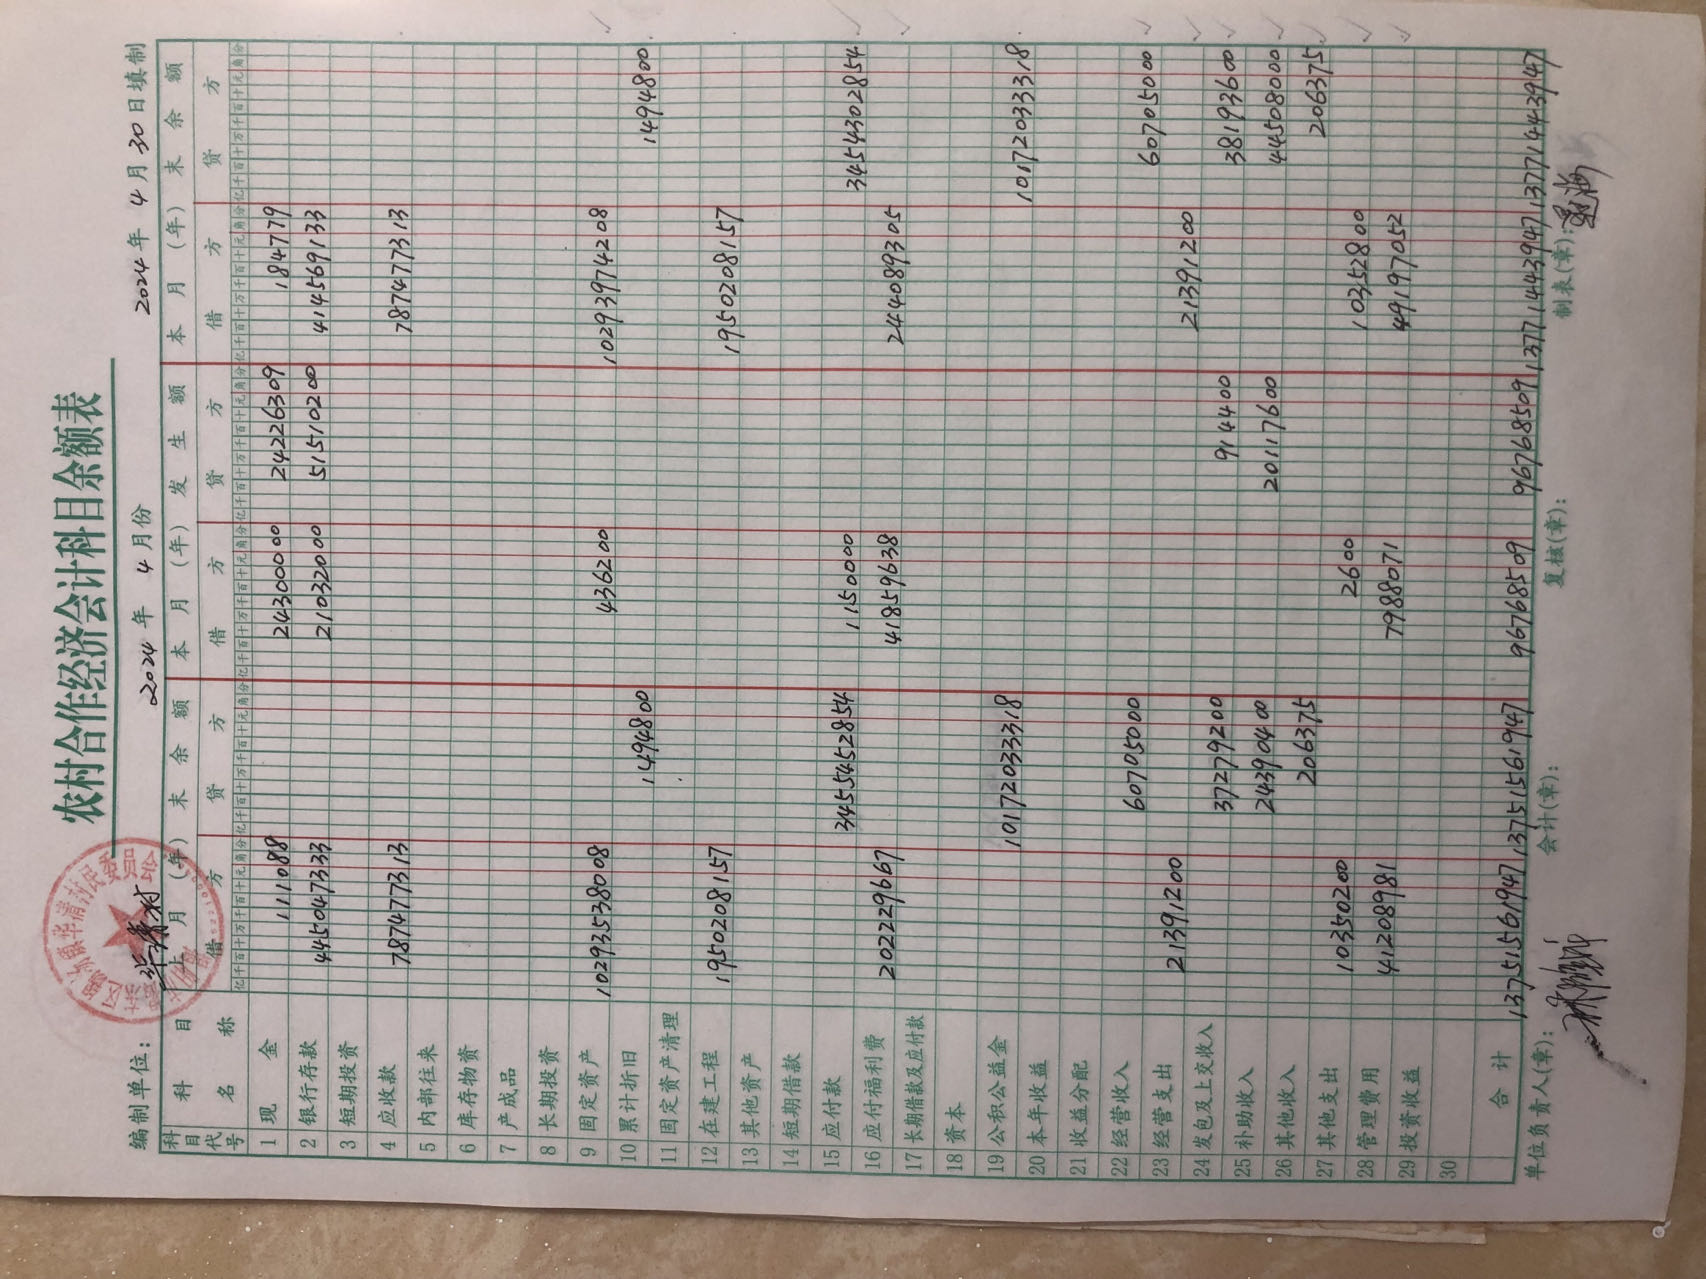 农村合作经济会计科目余额表
编制单位: 华清村 2024 年 4 月份 2024 年 4 月 30 日填制
科目代号 科目名称 上月(年)末余额 本月(年)发生额 本月(年)末余额
借方 贷方 借方 贷方 借方 贷方
亿千百十万千百十元角分 亿千百十万千百十元角分 亿千百十万千百十元角分 亿千百十万千百十元角分 亿千百十万千百十元角分 亿千百十万千百十元角分
1 现金 111088 24300000 24226309 184779
2 银行存款 445047333 21032000 51510200 414569133
3 短期投资
4 应收款 787477313 787477313
5 内部往来
6 库存物资
7 产成品
8 长期投资
9 固定资产 10293538008 436200 10293974208
10 累计折旧 1494800 1494800
11 固定资产清理
12 在建工程 1950208157 1950208157
13 其他资产
14 短期借款
15 应付款 3455452854 1150000 3454302854
16 应付福利费 202229667 41859638 244089305
17 长期借款及应付款
18 资本
19 公积公益金 10172033318 10172033318
20 本年收益
21 收益分配
22 经营收入 60705000 60705000
23 经营支出 21391200 21391200
24 发包及上交收入 37279200 914400 38193600
25 补助收入 24390400 20117600 44508000
26 其他收入 206375 206375
27 其他支出 10350200 2600 10352800
28 管理费用 41208981 7988071 49197052
29 投资收益
30
合计 13751561947 13751561947 96768509 96768509 13771443947 13771443947
单位负责人(章): 会计(章): 复核(章): 制表(章):